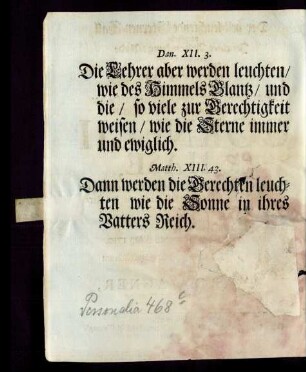 Dan. XII. 3.
Die Lehrer aber werden leuchten/
wie des Himmels Glantz/ und
die/ so viele zur Gerechtigkeit
weisen/ wie die Sterne immer
und ewiglich.
Matth. XIII. 43.
Dann werden die Gerechten leuch-
ten wie die Sonne in ihres
Vatters Reich.
Personalia 468 c